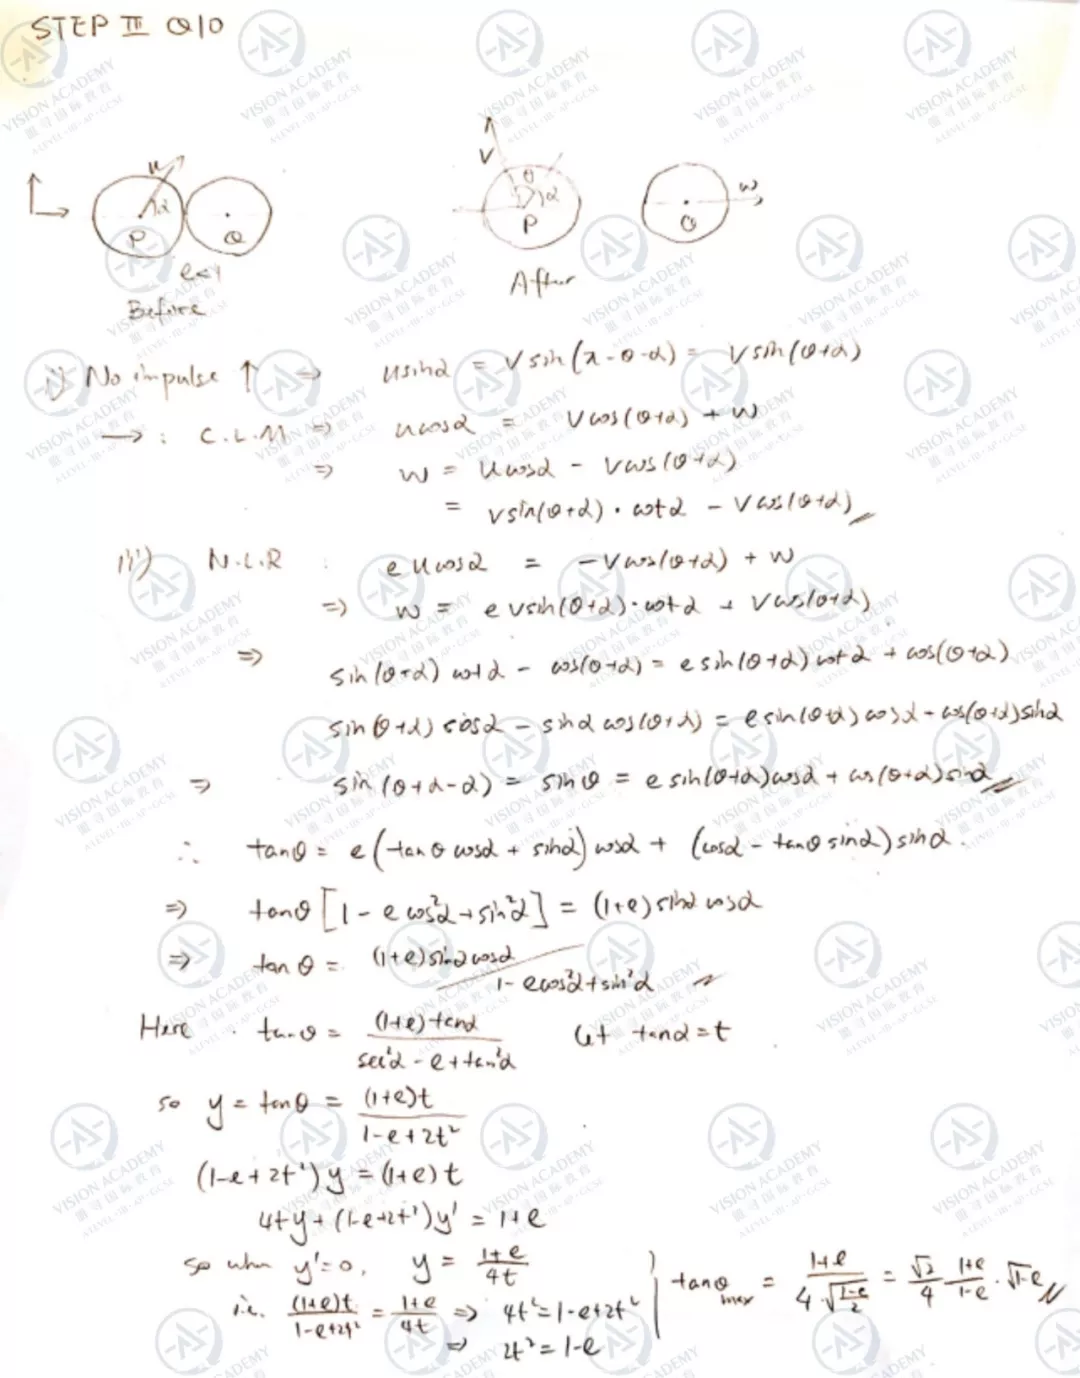 STEP III Q10
u
α
P
Q
e<1
Before
V
θ
α
P
Q
w
After
i) No impulse ↑ ⇒ usinα = Vsin(π-θ-α) = Vsin(θ+α)
→: C.L.M ⇒ ucosα = Vcos(θ+α) + w
⇒ w = ucosα - Vcos(θ+α)
= vsin(θ+α)·cotα - Vcos(θ+α)
N.L.R : eucosα = -Vcos(θ+α) + w
⇒ w = evsin(θ+α)·cotα + Vcos(θ+α)
⇒ sin(θ+α)cotα - cos(θ+α) = esin(θ+α)cotα + cos(θ+α)
sin(θ+α)cosα - sinαcos(θ+α) = esin(θ+α)cosα + cos(θ+α)sinα
⇒ sin(θ+α-α) = sinθ = esin(θ+α)cosα + cos(θ+α)sinα
∴ tanθ = e(tanθcosα + sinα)cosα + (cosα - tanθsinα)sinα.
⇒ tanθ[1-ecos²α+sin²α] = (1+e)sinαcosα
⇒ tanθ = (1+e)sinαcosα / 1-ecos²α+sin²α
Here tanθ = (1+e)tanα / sec²α-e+tan²α let tanα=t
so y = tanθ = (1+e)t / 1-e+2t²
(1-e+2t²)y = (1+e)t
4ty+(1-e+2t²)y' = 1+e
so when y'=0, y = 1+e / 4t
i.e. (1+e)t / 1-e+2t² = 1+e / 4t ⇒ 4t²=1-e+2t²
⇒ 2t²=1-e
tanθmax = 1+e / 4·√(1-e / 2) = √2 / 4 1+e / 1-e·√1-e
VISION ACADEMY
盟寻国际教育
A LEVEL·IB·AP·GCSE